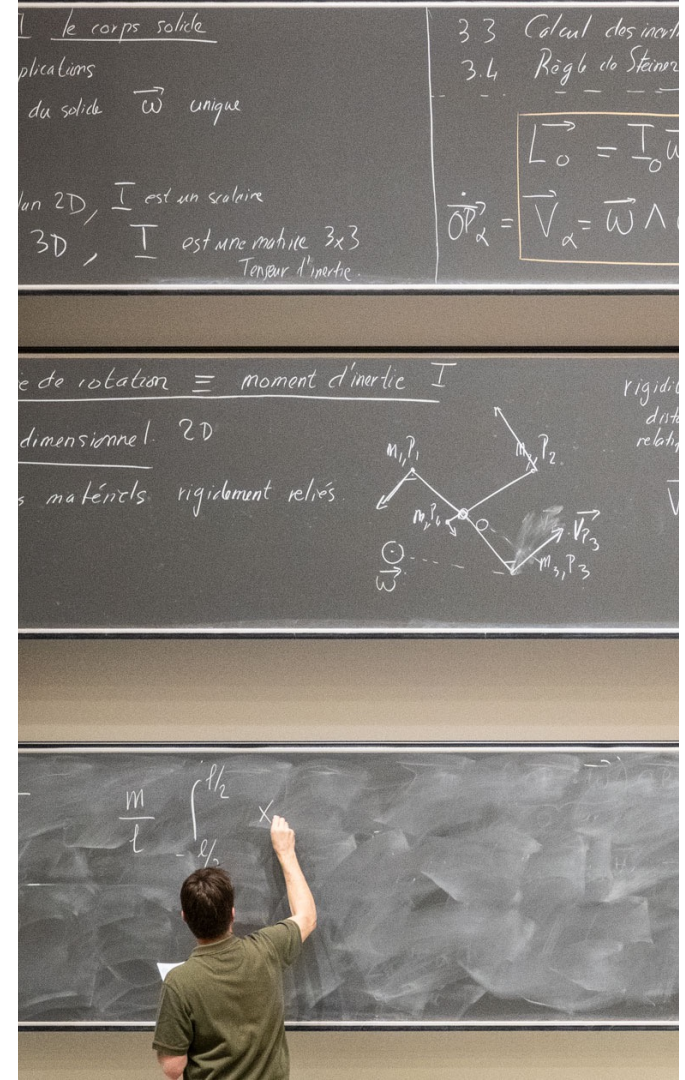 I le corps solide
plications
du solide ω⃗ unique
lan 2D, I est un scalaire
3D, I est une matrice 3x3
Tenseur d'inertie.
3 3 Calcul des inert
3.4 Règle de Steiner
L⃗o = Io ω
OP⃗α = V⃗α = ω⃗ ∧
e de rotation ≡ moment d'inertie I
dimensionnel 2D
s matériels rigidement reliés.
m, P₁
m, P₂
O
V⃗P₃
m₃, P₃
ω⃗
rigidi
dist
relati
V⃗
m/l ∫ l/2 -l/2 x